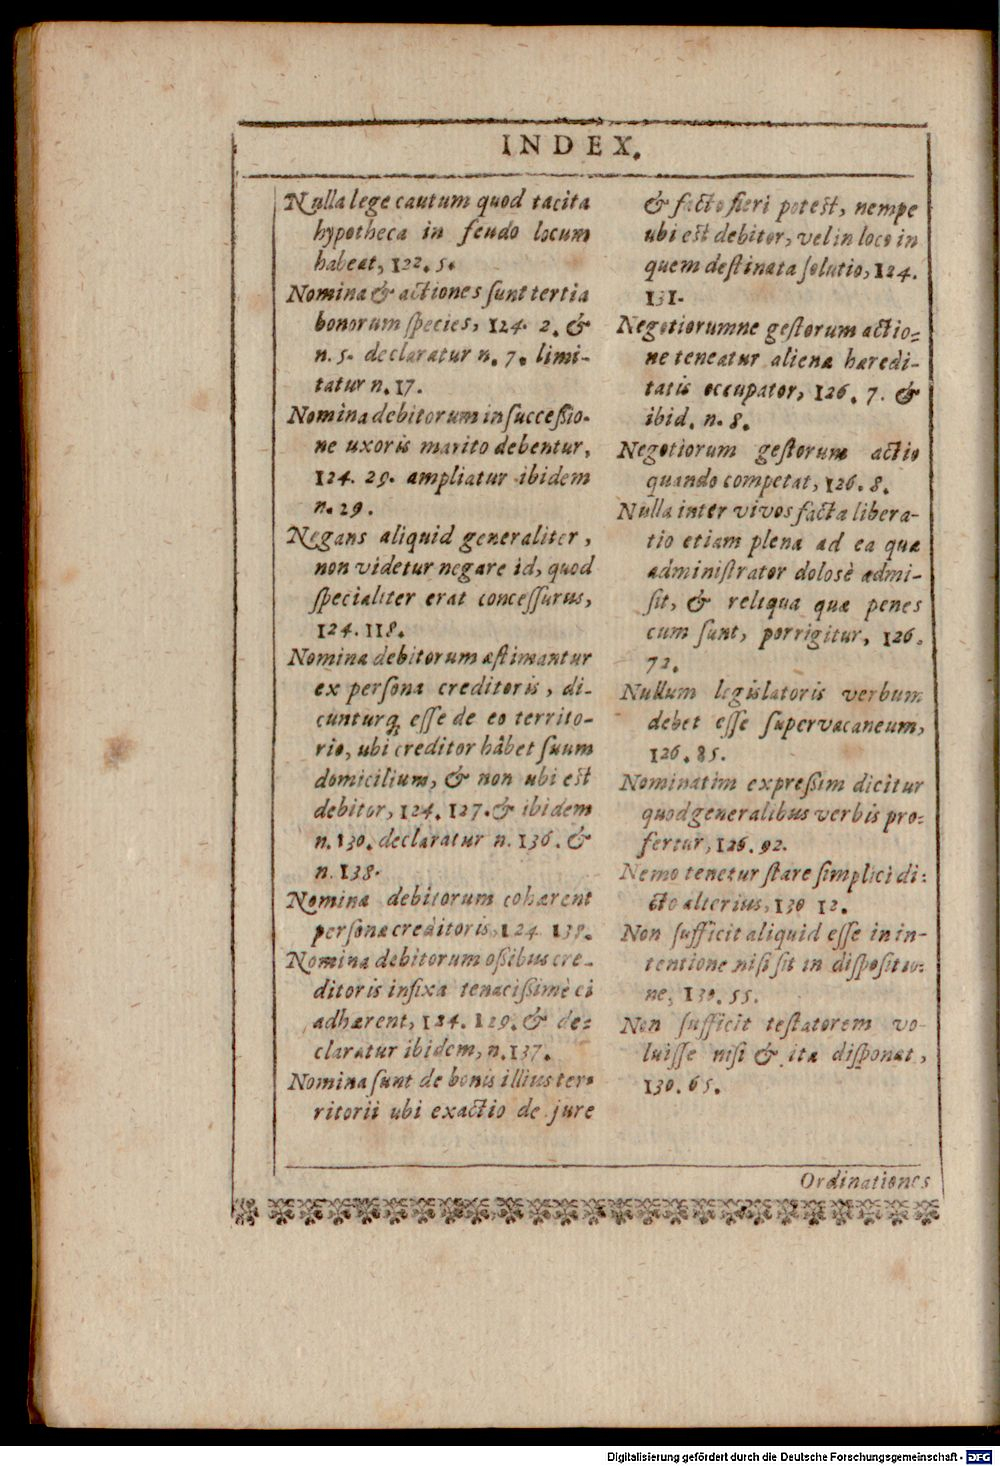 INDEX.
Nulla lege cautum quod tacita
hypotheca in feudo locum
habeat, 122. 5.
Nomina & actiones sunt tertia
bonorum species, 124. 2. &
n. 5. declaratur n. 7. limi-
tatur n. 17.
Nomina debitorum in successio-
ne uxoris marito debentur,
124. 29. ampliatur ibidem
n. 29.
Negans aliquid generaliter,
non videtur negare id, quod
specialiter erat concessurus,
124. 118.
Nomina debitorum æstimantur
ex persona creditoris, di-
cunturq́; esse de eo territo-
rio, ubi creditor hâbet suum
domicilium, & non ubi est
debitor, 124. 127. & ibidem
n. 130. declaratur n. 136. &
n. 138.
Nomina debitorum cohærent
personæ creditoris, 124. 138.
Nomina debitorum ossibus cre-
ditoris infixa tenacissimè ei
adhærent, 124. 129. & de-
claratur ibidem, n. 137.
Nomina sunt de bonis illius ter-
ritorii ubi exactio de jure
& facto fieri potest, nempe
ubi est debitor, vel in loco in
quem destinata solutio, 124.
131.
Negotiorumne gestorum actio-
ne teneatur alienæ hæredi-
tatis occupator, 126. 7. &
ibid. n. 8.
Negotiorum gestorum actio
quando competat, 126. 8.
Nulla inter vivos facta libera-
tio etiam plena ad ea quæ
administrator dolosè admi-
sit, & reliqua quæ penes
eum sunt, porrigitur, 126.
72.
Nullum legislatoris verbum
debet esse supervacaneum,
126. 85.
Nominatim expressim dicitur
quod generalibus verbis pro-
fertur, 126. 92.
Nemo tenetur stare simplici di-
cto alterius, 130 12.
Non sufficit aliquid esse in in-
tentione nisi sit in dispositio-
ne, 130. 55.
Non sufficit testatorem vo-
luisse nisi & ita disponat,
130. 65.
Ordinationes
Digitalisierung gefördert durch die Deutsche Forschungsgemeinschaft - DFG